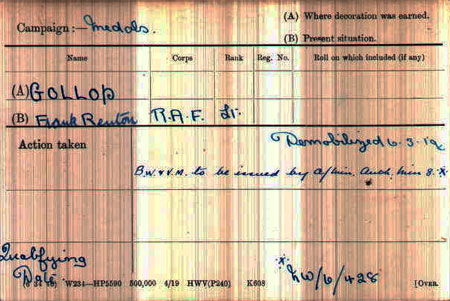 (A) Where decoration was earned.
Campaign:— Medals.
(B) Present situation.
Name Corps Rank Reg. No. Roll on which included (if any)
(A) GOLLOP
(B) Frank Renton R.A.F. Lt.
Demobilized 6.3.19
Action taken
B.W. & V.M. to be issued by Auth.
Qualifying
Date
W234—HP5590 500,000 4/19 HWV(P240) K608
/6/428
[OVER.